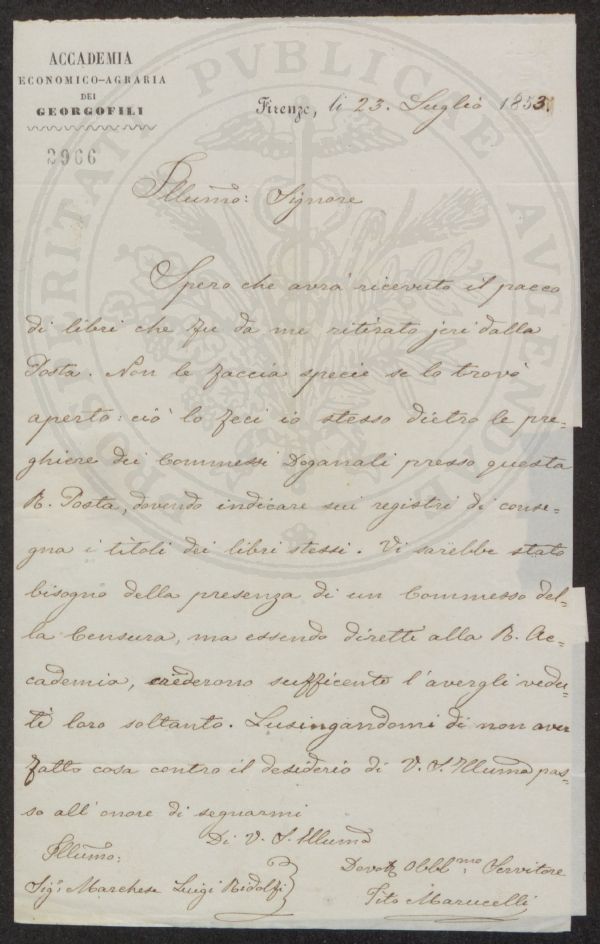 ACCADEMIA
ECONOMICO-AGRARIA
DEI
GEORGOFILI
3966
Firenze, li 23. Luglio 1853.
Illummo: Signore
Spero che avrà ricevuto il pacco
di libri che fu da me ritirato jeri dalla
Posta. Non le faccia specie se lo trovò
aperto: ciò lo feci io stesso dietro le pre-
ghiere dei Commessi Doganali presso questa
R. Posta, dovendo indicare sui registri di conse-
gna i titoli dei libri stessi. Vi sarebbe stato
bisogno della presenza di un Commesso del-
la Censura, ma essendo diretti alla R. Ac-
cademia, crederono sufficente l'avergli vedu-
ti loro soltanto. Lusingandomi di non aver
fatto cosa contro il desiderio di V. S. Illuma pas-
so all'onore di segnarmi
Di V. S. Illuma
Illummo:
Sigr Marchese Luigi Ridolfi
Devotmo Obblmo: Servitore
Tito Marucelli
PROSPERITATI PVBLICAE AVGENDAE